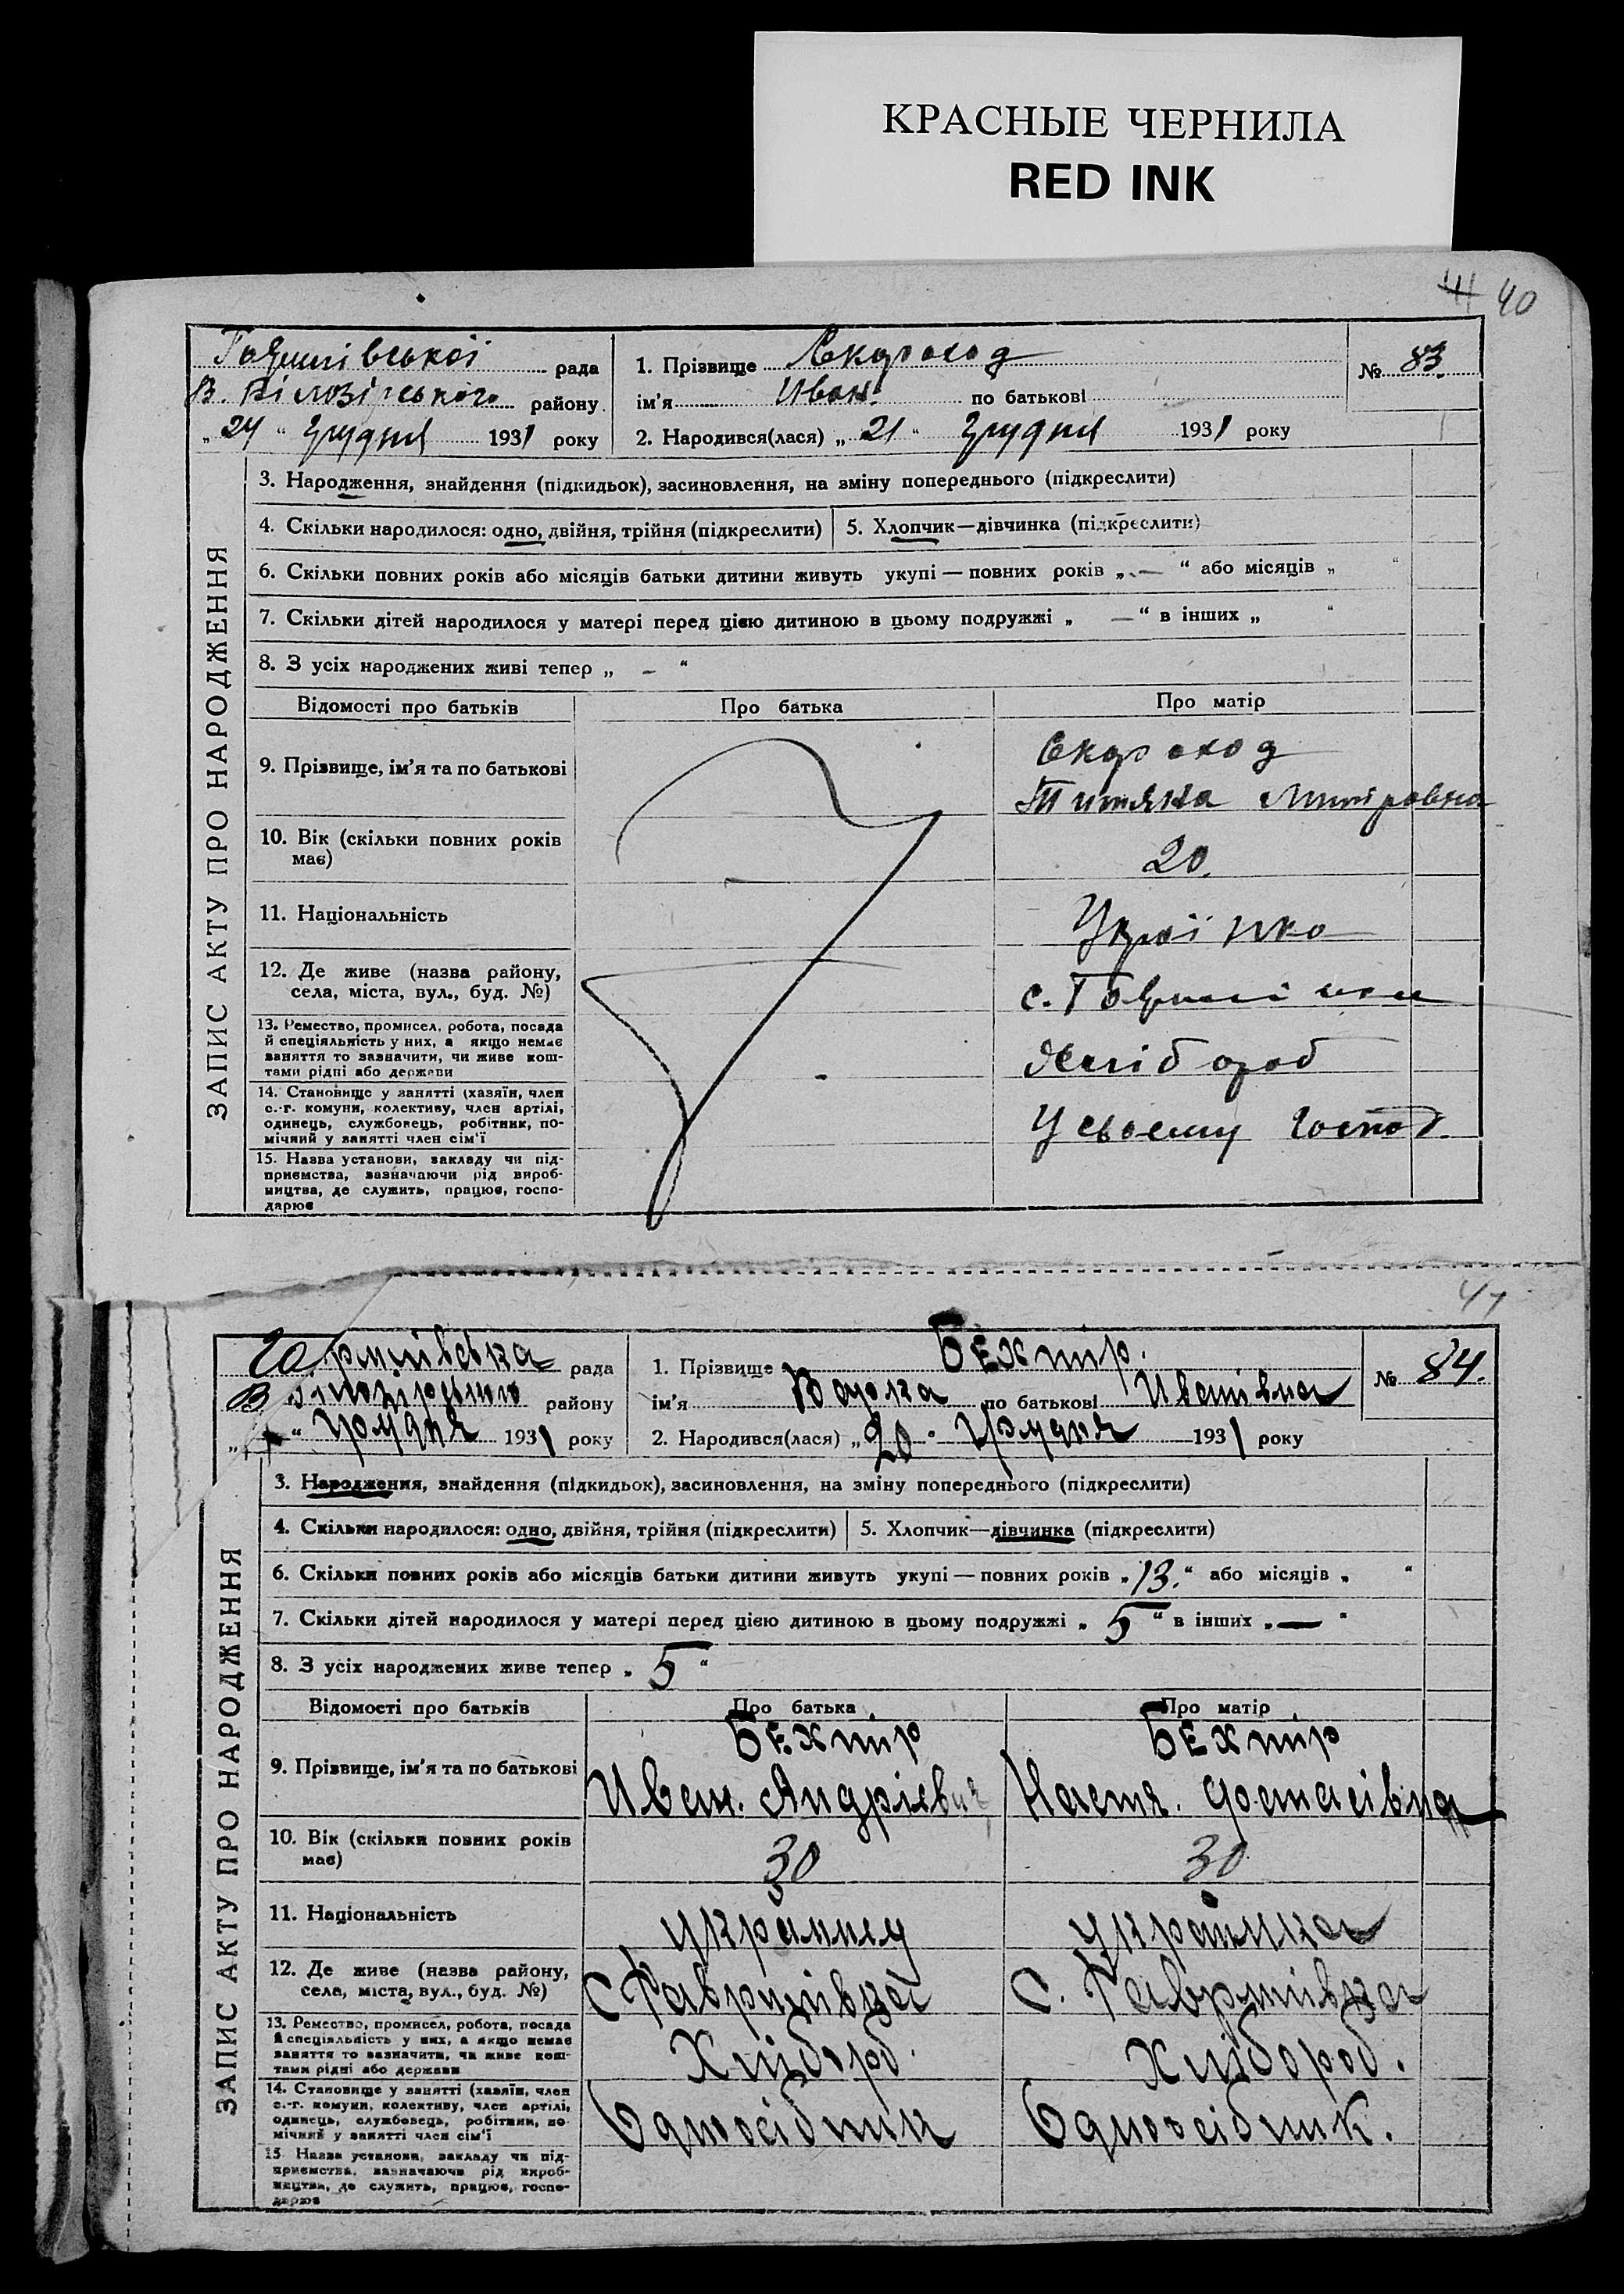 КРАСНЫЕ ЧЕРНИЛА
RED INK
41 40
рада
В. Білозірського району
„ 24 “ Грудня 1931 року
1. Прізвище Скороход
ім’я Иван. по батькові
2. Народився(лася) „ 21 “ Грудня 1931 року
№ 83.
ЗАПИС АКТУ ПРО НАРОДЖЕННЯ
3. Народження, знайдення (підкидьок), засиновлення, на зміну попереднього (підкреслити)
4. Скільки народилося: одно, двійня, трійня (підкреслити)
5. Хлопчик—дівчинка (підкреслити)
6. Скільки повних років або місяців батьки дитини живуть укупі — повних років „ — “ або місяців „ “
7. Скільки дітей народилося у матері перед цією дитиною в цьому подружжі „ — “ в інших „ “
8. З усіх народжених живі тепер „ – “
Відомості про батьків
Про батька
Про матір
9. Прізвище, ім’я та по батькові
Скороход
Титяна
10. Вік (скільки повних років
має)
20.
11. Національність
Українка
12. Де живе (назва району,
села, міста, вул., буд. №)
с.
13. Ремество, промисел, робота, посада
й спеціяльність у них, а якщо немає
заняття то зазначити, чи живе кош-
тами рідні або держави
Хлібороб
14. Становище у занятті (хазяїн, член
с.-г. комуни, колективу, член артілі,
одинець, службовець, робітник, по-
мічний у занятті член сім’ї
У своєму Господ.
15. Назва установи, закладу чи під-
приємства, зазначаючи рід вироб-
ництва, де служить, працює, госпо-
дарює
41
рада
В району
“ Грудня 1931 року
1. Прізвище Бехтір.
ім’я Варка по батькові Иванівна
2. Народився(лася) „ 20 “ Грудня 1931 року
№ 84.
ЗАПИС АКТУ ПРО НАРОДЖЕННЯ
3. Народження, знайдення (підкидьок), засиновлення, на зміну попереднього (підкреслити)
4. Скільки народилося: одно, двійня, трійня (підкреслити)
5. Хлопчик—дівчинка (підкреслити)
6. Скільки повних років або місяців батьки дитини живуть укупі — повних років „ 13. “ або місяців „ “
7. Скільки дітей народилося у матері перед цією дитиною в цьому подружжі „ 5 “ в інших „ — “
8. З усіх народжених живе тепер „ 5 “
Відомості про батьків
Про батька
Про матір
9. Прізвище, ім’я та по батькові
Бехтір
Иван. Андрієвич
Бехтір
Настя.
10. Вік (скільки повних років
має)
30
30
11. Національність
українка
12. Де живе (назва району,
села, міста, вул., буд. №)
С
С. Гаврилівка
13. Ремество, промисел, робота, посада
й спеціяльність у них, а якщо немає
заняття то зазначити, чи живе кош-
тами рідні або держави
Хлібороб.
Хлібороб.
14. Становище у занятті (хазяїн, член
с.-г. комуни, колективу, член артілі,
одинець, службовець, робітник, по-
мічний у занятті член сім’ї
Одноосібник
Одноосібник.
15. Назва установи, закладу чи під-
приємства, зазначаючи рід вироб-
ництва, де служить, працює, госпо-
дарює